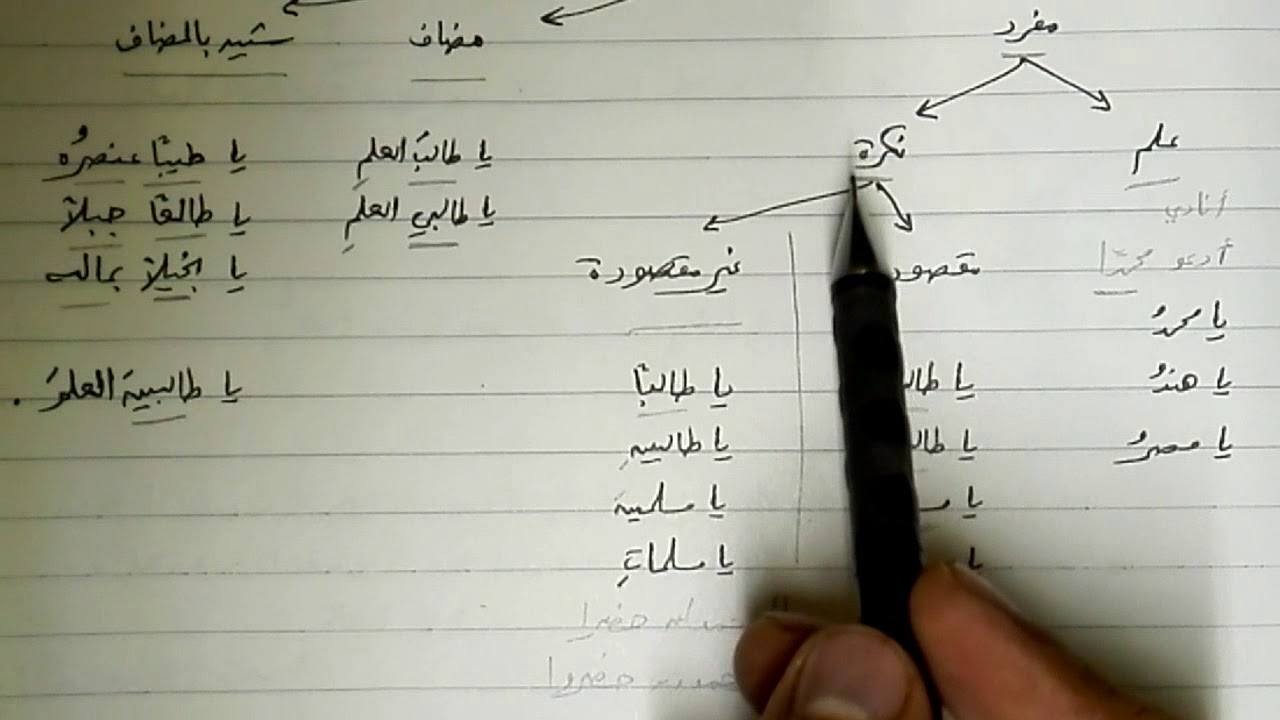 مفرد
مضاف
شبيه بالمضاف
علم
نكرة
أنادي
أدعو محمدًا
يا محمدُ
يا هندُ
يا مصرُ
مقصود
يا طال
يا طال
يا مس
يا
غير مقصودة
يا طالبًا
يا طالبينِ
يا مسلمينَ
يا مسلماتٍ
حضرا
حضروا
يا طالبَ العلمِ
يا طالبي العلمِ
يا طيبًا عنصرُه
يا طالعًا جبلاً
يا بخيلاً بماله
يا طالبينَ العلمَ .